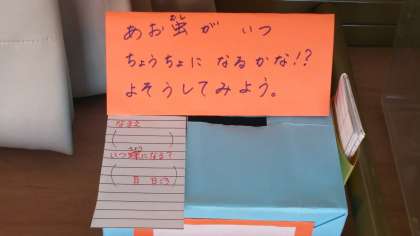 あお虫が いつ
ちょうちょに なるかな!?
よそうしてみよう。
なまえ
( )
いつ蝶になる?
( 月 日ごろ )